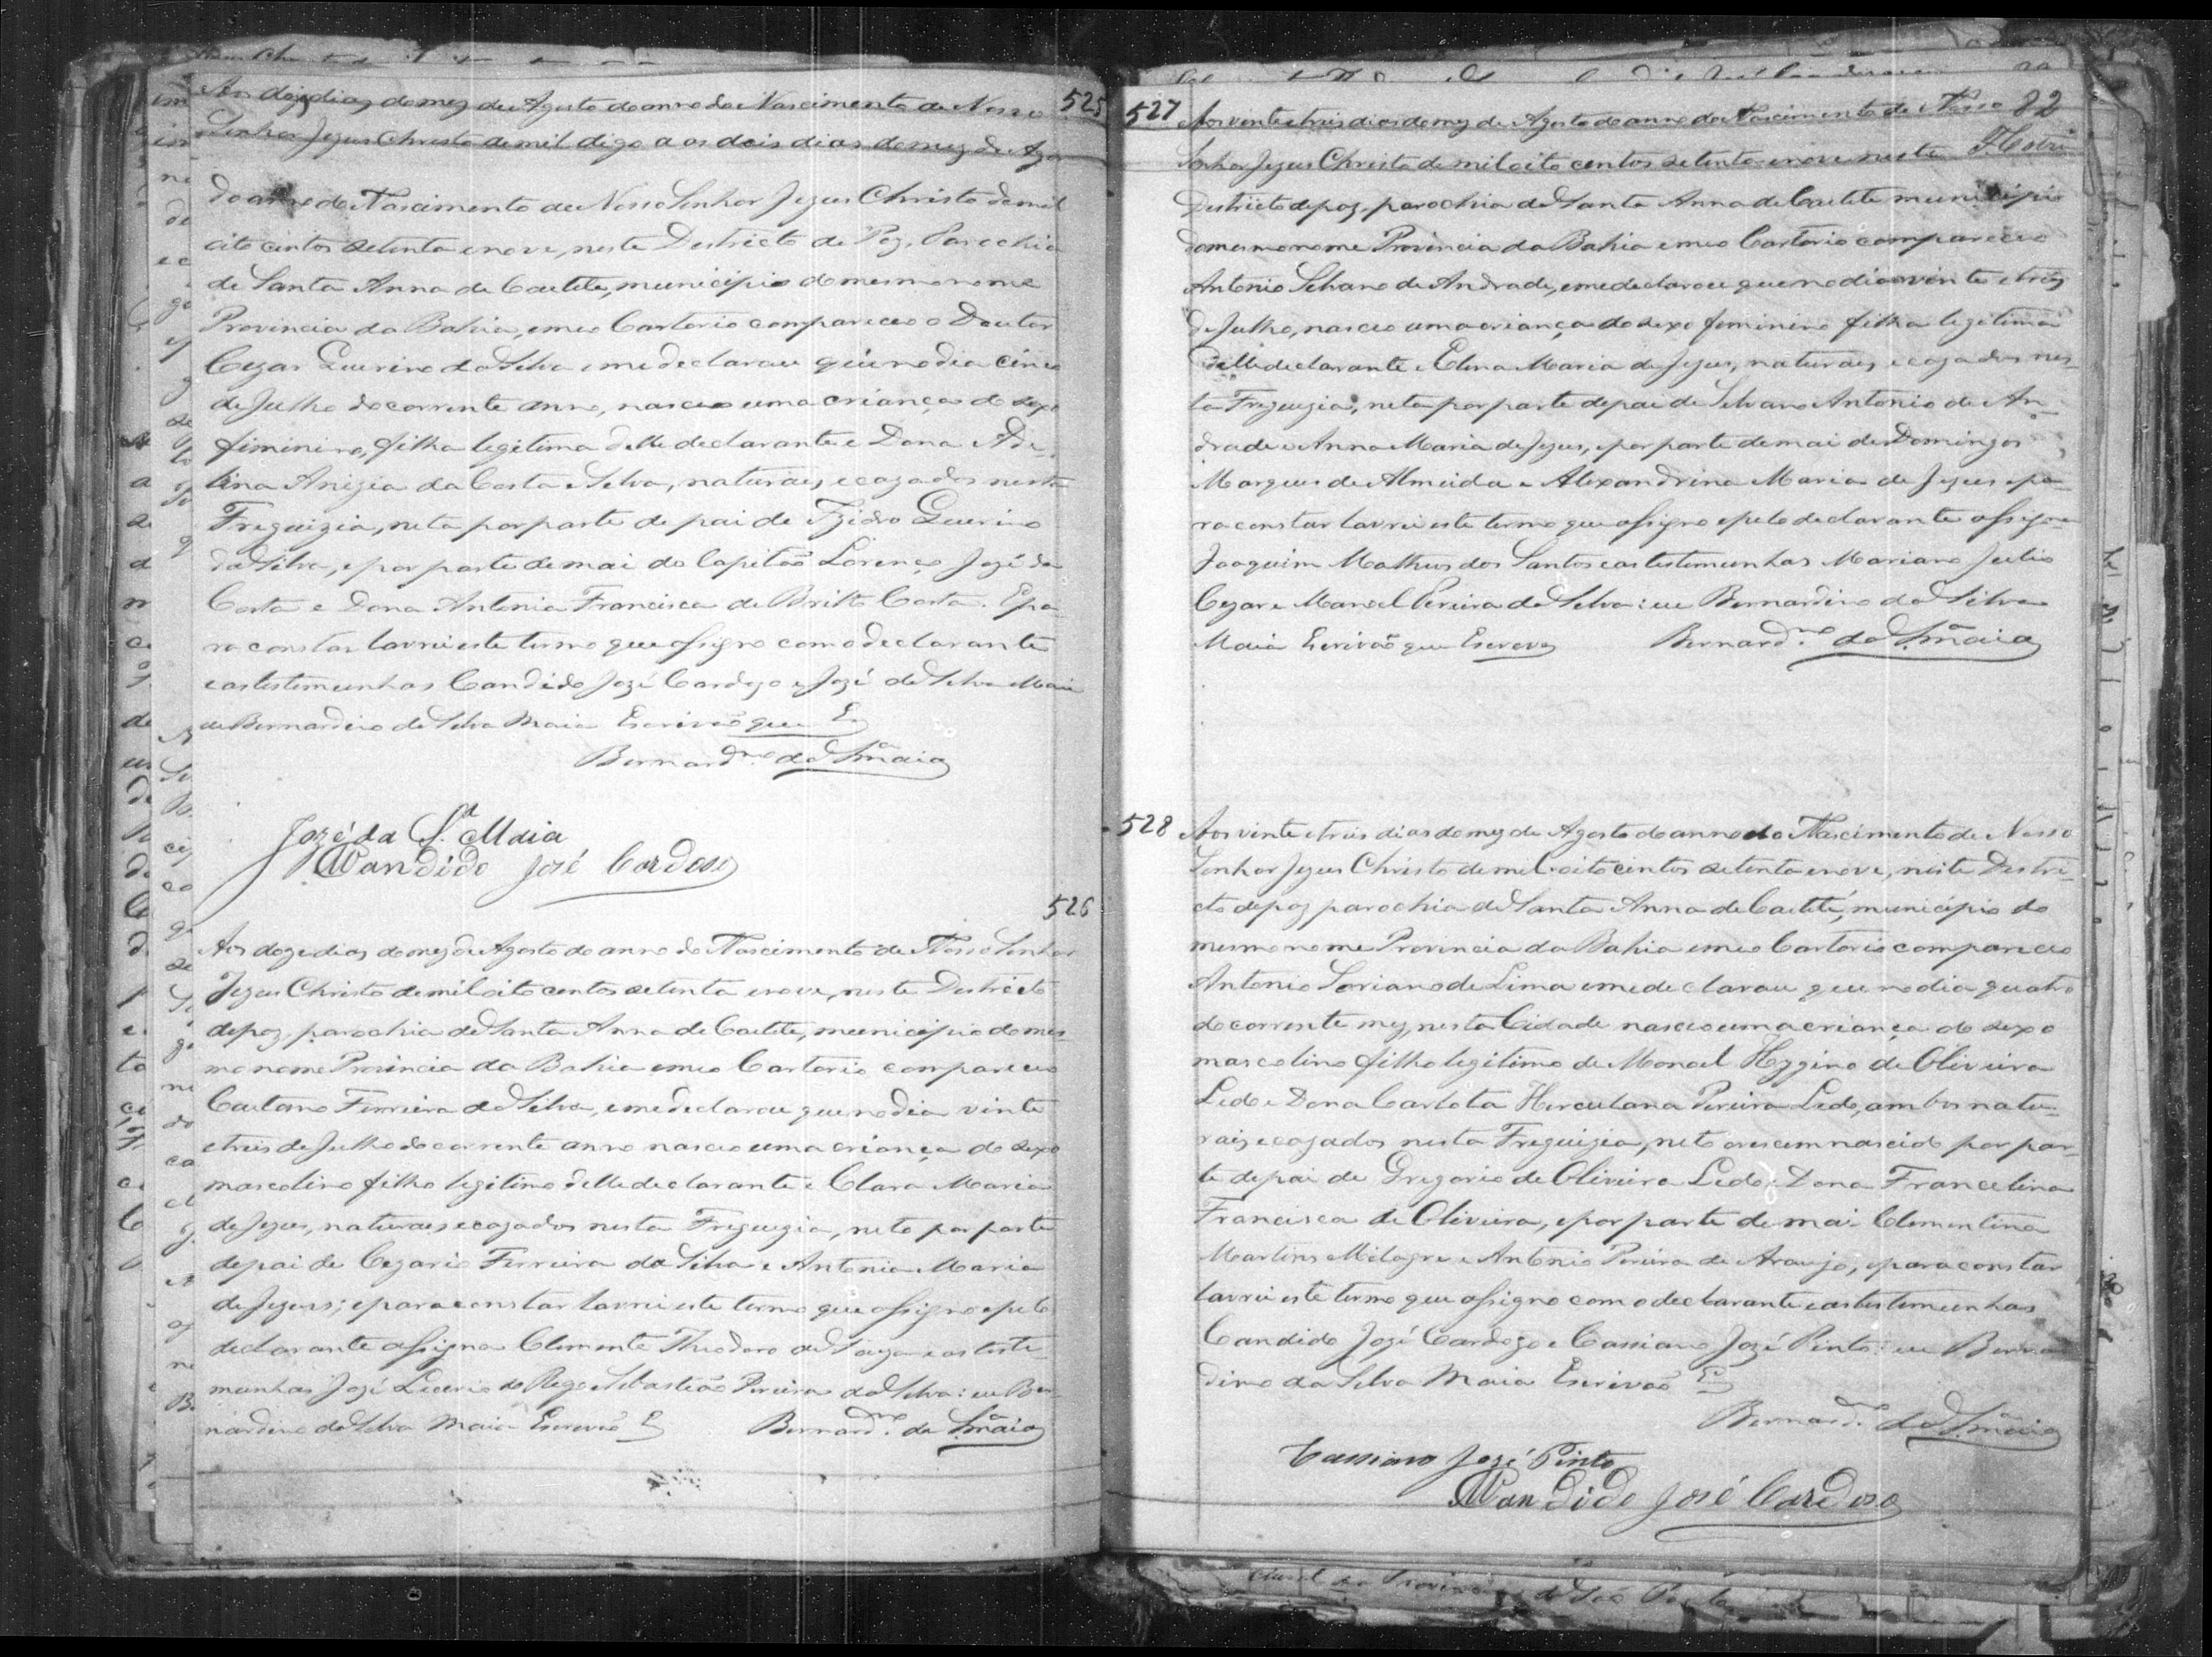 525
Aos doze dias do mez de Agosto do anno do Nascimento de Nosso
Senhor Jezus Christo de mil digo a os dois dias do mez de Ago
do anno do Nascimento de Nosso Senhor Jezus Christo de mil
oito centos setenta e nove, neste Destricto de Paz, Parochia
de Santa Anna de Caetete, municipio do mesmo nome
Provincia da Bahia, em meo Cartorio compareceo o Doutor
Cezar Querino da Silva e me declarou que no dia cinco
de Julho do corrente anno, nasceo uma criança do sexo
feminino, filha legitima delle declarante e Dona Ade-
lina Anizia da Costa e Silva, naturaes e cazados nesta
Freguizia, neta por parte de pai de Izidro Querino
da Silva, e por parte de mai do Capitaõ Lorenço Jozé da
Costa e Dona Antonia Francisca de Britto Costa. E pa-
ra constar lavrei este termo que assigno com o declarante
e as testemunhas Candido Jozé Cardozo e Jozé da Silva Maia
eu Bernardino da Silva Maia Escrivaõ que E
Bernard.no da S.a Maia
Jozé da S.a Maia
Candido José Cardoso
526
Aos doze dias do mez de Agosto do anno do Nascimento de Nosso Senhor
Jezus Christo de mil oito centos setenta e nove, neste Destricto
de paz, parochia de Santa Anna de Caetete, municipio do mes
mo nome Provincia da Bahia em meo Cartorio compareceo
Caetano Ferreira da Silva, e me declarou que no dia vinte
e treis de Julho do corrente anno nasceo uma criança do sexo
mascolino filho legitimo delle declarante e Clara Maria
de Jezus, naturaes e cazados nesta Freguezia, neto por parte
de pai de Cezario Ferreira da Silva e Antonia Maria
de Jezus; e para constar lavrei este termo que assigno e pelo
declarante assigna Clemente Theodoro de Souza e as teste-
munhas Jozé Licerio do Rego e Sebastiaõ Pereira da Silva: eu Ber-
nardino da Silva Maia Escrivaõ E
Bernard.no da S.a Maia
527
82
Aos vinte e treis dias do mez de Agosto do anno do Nascimento de Nosso
Senhor Jezus Christo de mil oito centos setenta e nove neste
Destricto de paz, parochia de Santa Anna de Caetete municipio
do mesmo nome Provincia da Bahia em meo Cartorio compareceo
Antonio Silvano de Andrade, e me declarou que no dia vinte e trez
de Julho, nasceo uma criança do sexo feminino filha legitima
delle declarante e Elena Maria de Jezus, naturaes e cazados nes-
ta Freguezia, neta por parte de pai de Silvano Antonio de An-
drade e Anna Maria de Jezus, e por parte de mai de Domingos
Marques de Almeida e Alexandrina Maria de Jezus e pa-
ra constar lavrei este termo que assigno e pelo declarante assigna
Joaquim Matheus dos Santos e as testemunhas Mariano Julio
Cezar e Manoel Pereira da Silva: eu Bernardino da Silva
Maia Escrivaõ que Escrevi
Bernard.no da S.a Maia
528
Aos vinte e treis dias do mez de Agosto do anno do Nascimento de Nosso
Senhor Jezus Christo de mil oito centos setenta e nove, neste Destri-
cto de paz parochia de Santa Anna de Caetité, municipio do
mesmo nome Provincia da Bahia em meo Cartorio compareceo
Antonio Soriano de Lima e me declarou que no dia quatro
do corrente mez, nesta Cidade nasceo uma criança do sexo
mascolino filho legitimo de Manoel Hygino de Oliveira
Ledo e Dona Carlota Herculana Pereira Ledo, ambos natu-
raes e cazados nesta Freguizia, neto o recemnascido por par-
te de pai de Gregorio de Oliveira Ledo e Dona Francelina
Francisca de Oliveira, e por parte de mai Clementina
Martins Milagre e Antonio Pereira de Araujo, e para constar
lavrei este termo que assigno com o declarante e as testemunhas
Candido Jozé Cardozo e Cassiano Jozé Pinto: eu Berna
dino da Silva Maia Escrivaõ E
Bernard.no da S.a Maia
Cassiano Jozé Pinto
Candido José Cardoso